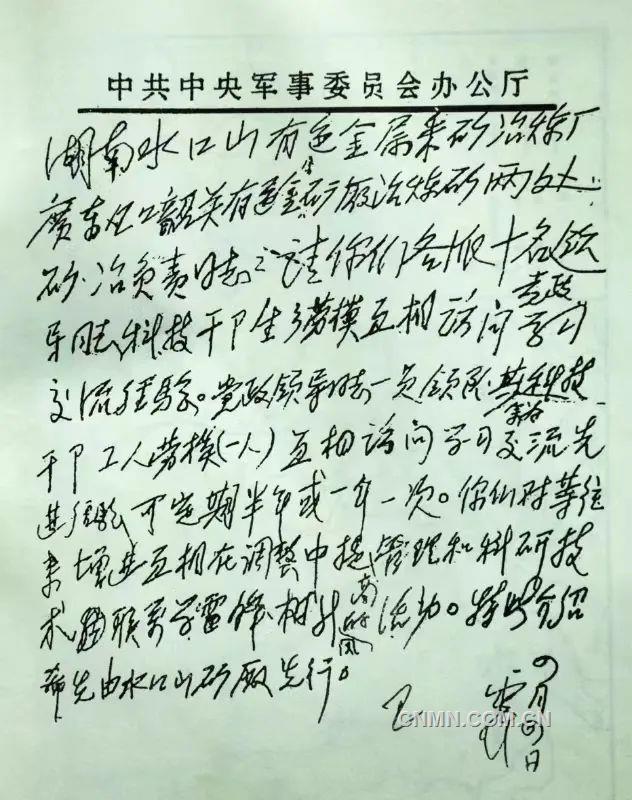 中共中央军事委员会办公厅
湖南水口山有色金属采矿冶炼厂
广东 韶关有色金 矿厰冶炼矿两处
矿冶负责同志 请你们各派十名 领
导同志科技干 生 劳模互相访问学习
党政
交流经验。党政领导同志一员领队 科技
干 工人劳模(一人)互相访问学习交流先
进经验可定期半年或一年一次。你们对等往
来增进互相在调整中提高管理和科研技
术 联系学雷锋 的风 活动。特此介绍
希先由水口山矿厰先行。
王震
四月四日
CNMN.COM.CN